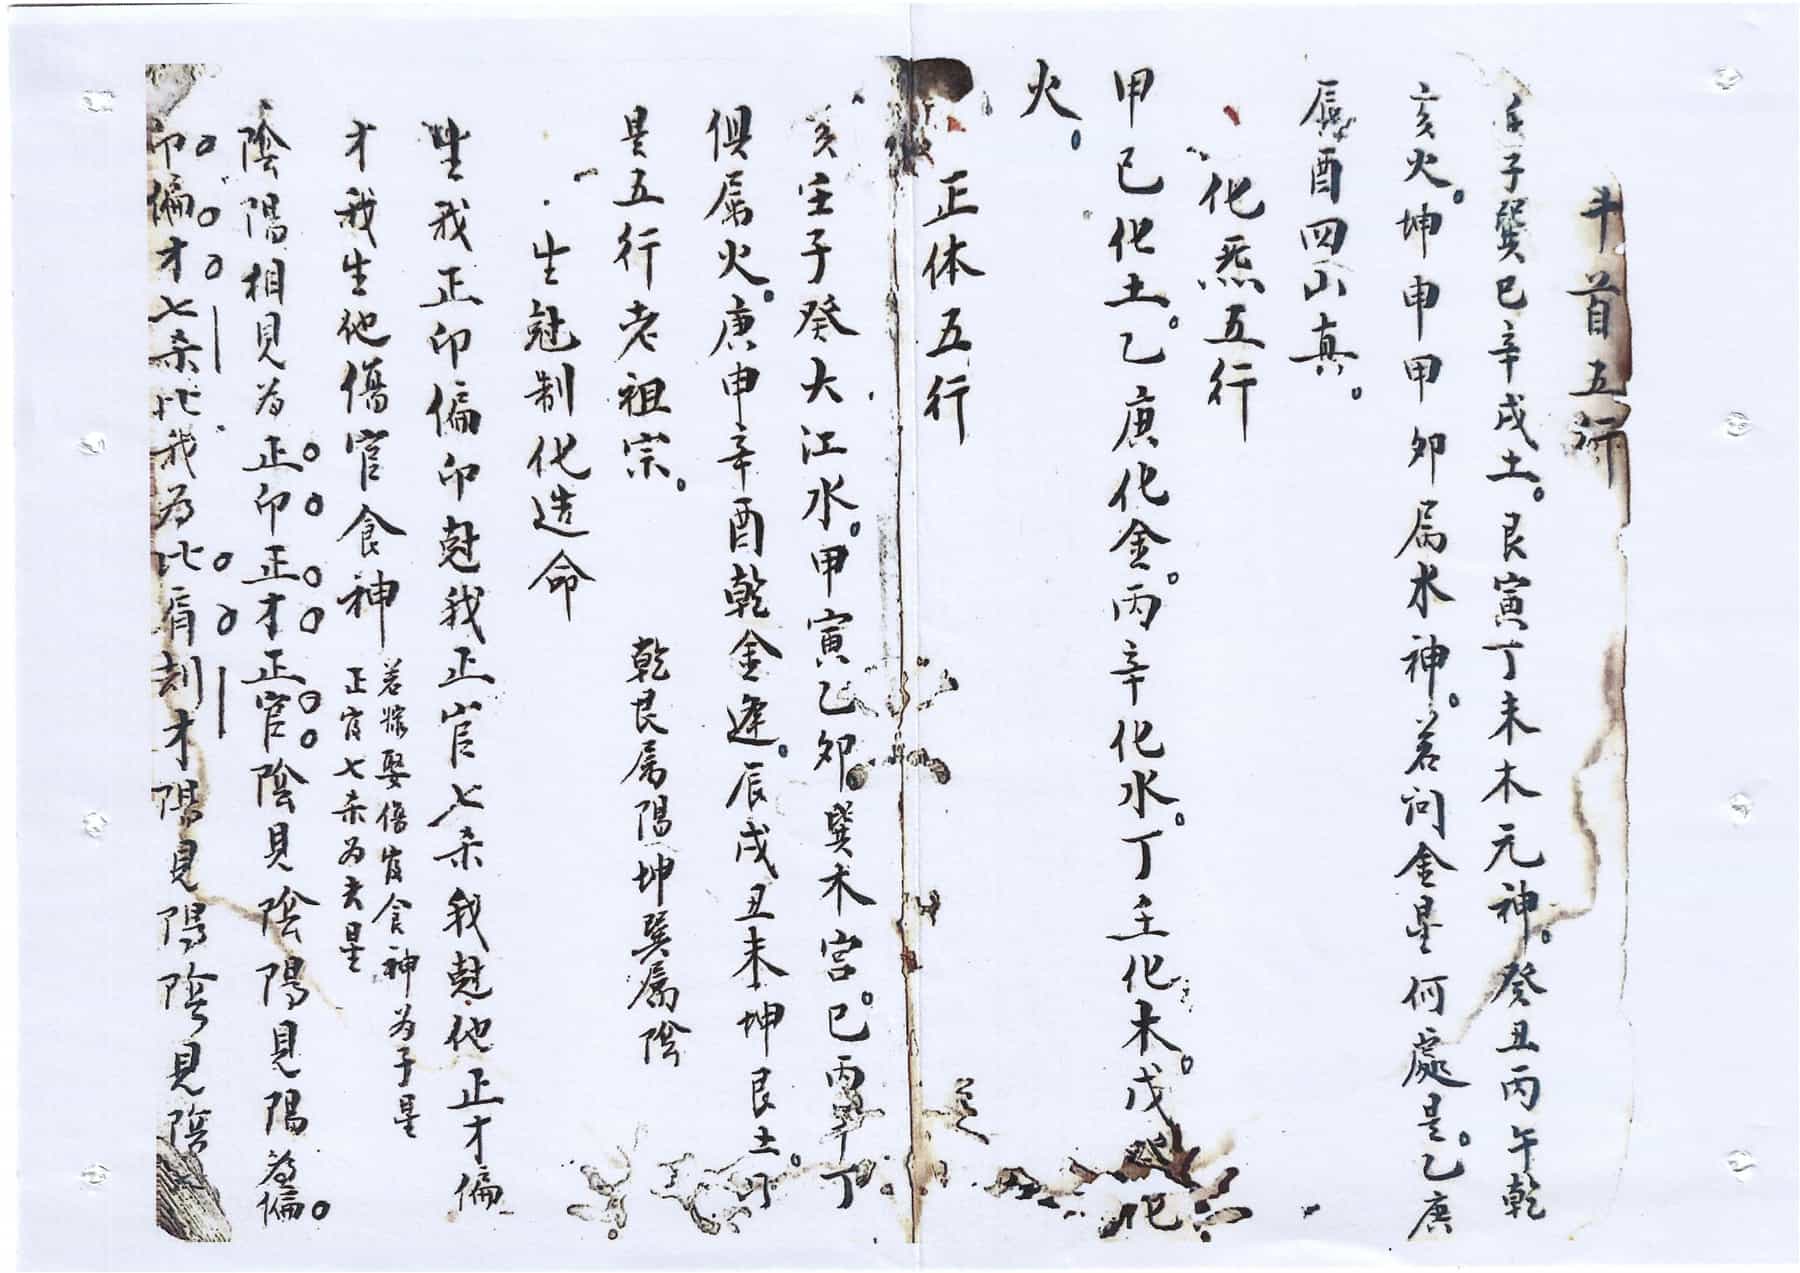 斗首五行
壬子巽巳辛戌土。艮寅丁未木元神。癸丑丙午乾
亥火。坤申甲卯属水神。若问金星何處是。乙庚
辰酉四山真。
化炁五行
甲己化土。乙庚化金。丙辛化水。丁壬化木。戊癸化
火。
正体五行
亥壬子癸大江水。甲寅乙卯巽木宮。巳丙午丁
俱属火。庚申辛酉乾金逢。辰戌丑未坤艮土。
是五行老祖宗。 乾艮属陽坤巽属陰
生尅制化造命
生我正印偏印尅我正官七杀我尅他正才偏
才我生他傷官食神
若嫁娶傷官食神为子星
正官七杀为夫星
陰陽相見为正印正才正官陰見陰陽見陽为偏。
印偏才七杀比我为比肩刦才陽見陽陰見陰